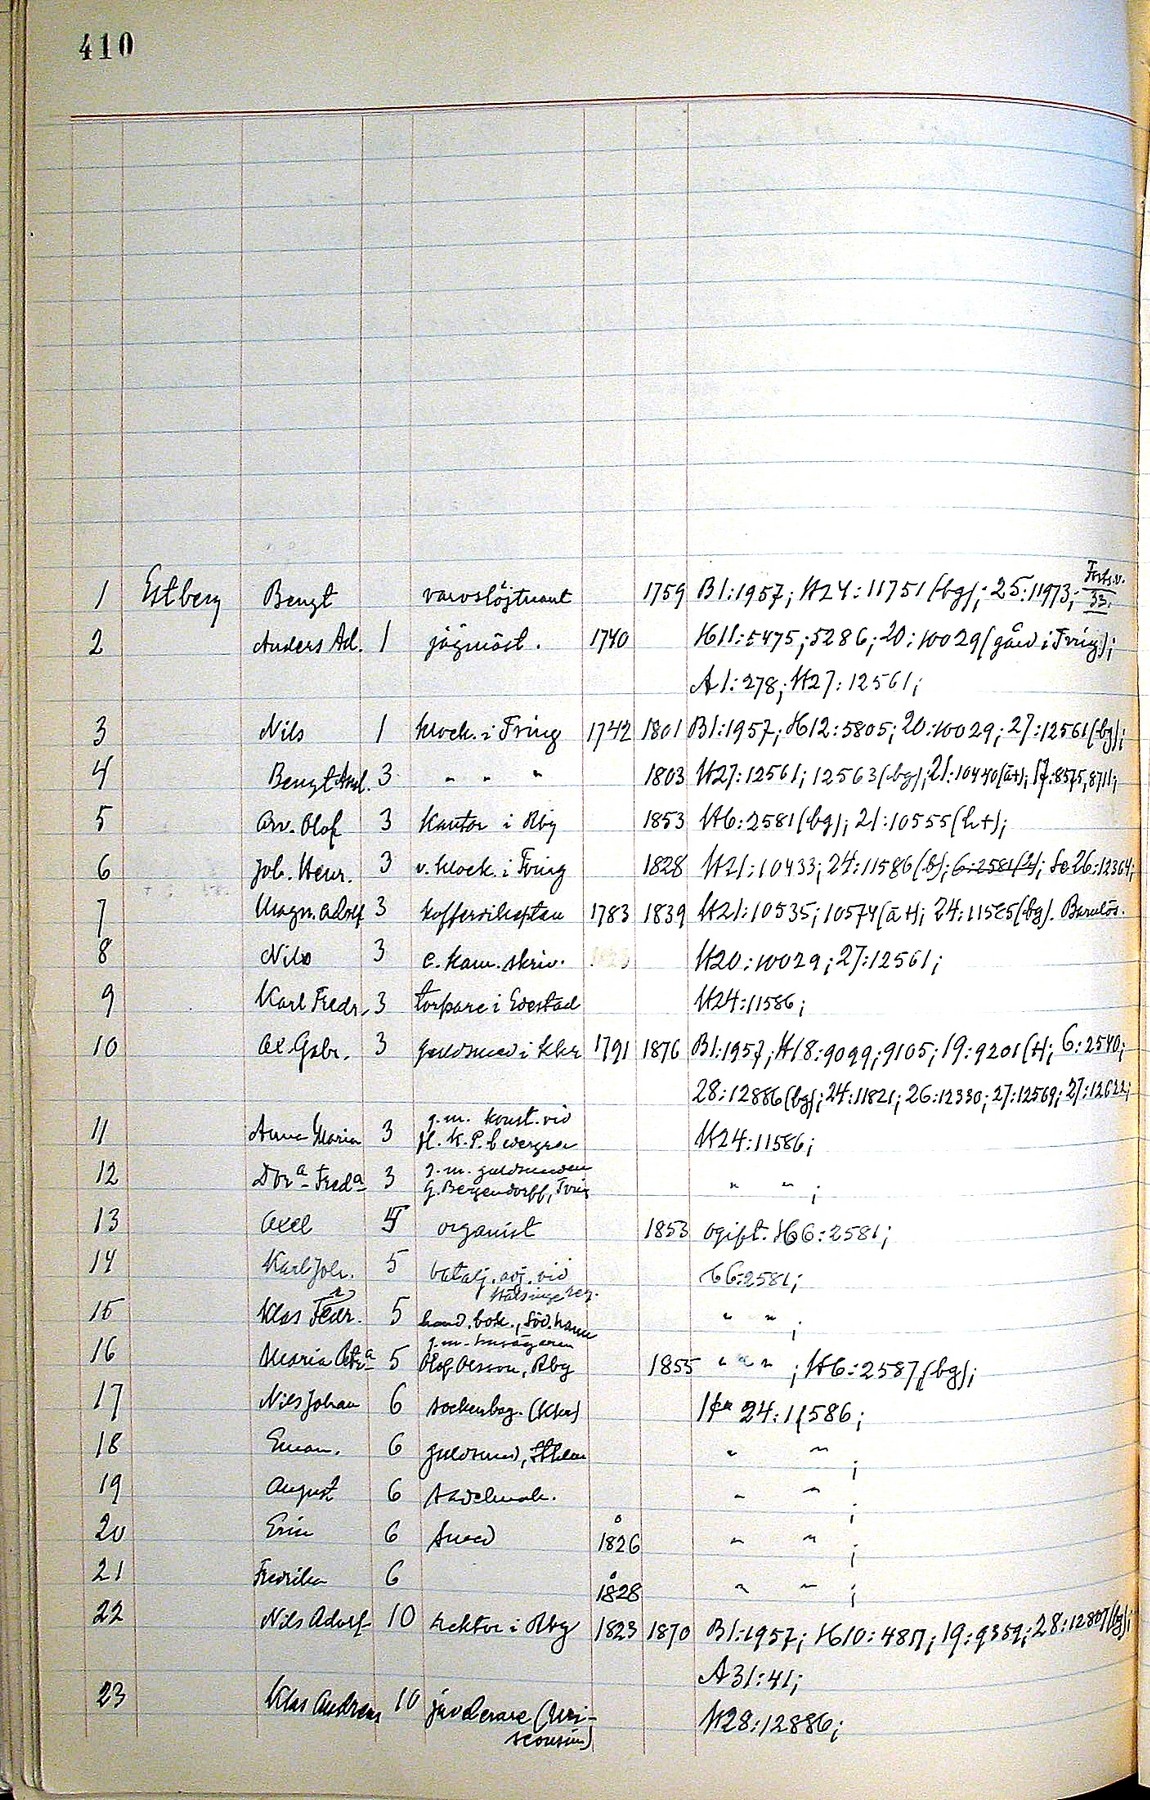 410
1 Estberg Bengt varvslöjtnant 1759 B1:1957; H24:11751(bg); 25:11973; Forts.v. 33.
2 Anders Ad. 1 jägmäst. 1740 H11:5475; 5286; 20:10029(gård i Tving);
A1:278; H27:12561;
3 Nils 1 klock. i Tving 1742 1801 B1:1957; H12:5805; 20:10029; 27:12561(bg);
4 Bengt And. 3 " " " 1803 H27:12561; 12563(bg); 21:10440(ä+); 17:8575, 8711;
5 Arv. Olof 3 kantor i Rby 1853 H6:2581(bg); 21:10555(h+);
6 Joh. Henr. 3 v. klock. i Tving 1828 H21:10433; 24:11586(b); 6:2581(h); Se 26:12364;
7 Magn. Adolf 3 kofferdikapten 1783 1839 H21:10535; 10574(ä+); 24:11585(bg). Barnlös.
8 Nils 3 e. kam. skriv. H20:10029; 27:12561;
9 Karl Fredr. 3 torpare i Edestad H24:11586;
10 Ax. Gabr. 3 guldsmed i Khr 1791 1876 B1:1957; H18:9099; 9105; 19:9201(+); 6:2540;
28:12886(bg); 24:11821; 26:12330; 27:12569; 27:12622;
11 Anna Maria 3 g.m. konst. vid
H. K. P. Cedergren H24:11586;
12 Dor:a Fred:a 3 g.m. guldsmeden
G. Bergendorff, Tving " " ;
13 Axel 5 organist 1853 ogift. H6:2581;
14 Karl Joh. 5 batalj. adj. vid
Hälsinge reg. H6:2581;
15 Klas Fredr. 5 hand. bok., Söd.hamn " " ;
16 Maria Petr:a 5 g.m. husägaren
Olof Olsson, Rby 1855 " " " ; H6:2587(bg);
17 Nils Johan 6 sockenbag. (Khr) H 24:11586;
18 Eman. 6 guldsmed, Sthlm " " ;
19 August 6 sadelmak. " " ;
20 Erin 6 smed 1826 " " ;
21 Fredrika 6 1828 " " ;
22 Nils Adolf 10 rektor i Rby 1823 1870 B1:1957; H10:4817; 19:9359; 28:12887(bg);
A31:41;
23 Klas Andreas 10 juvelerare (Wis-
consin) H28:12886;